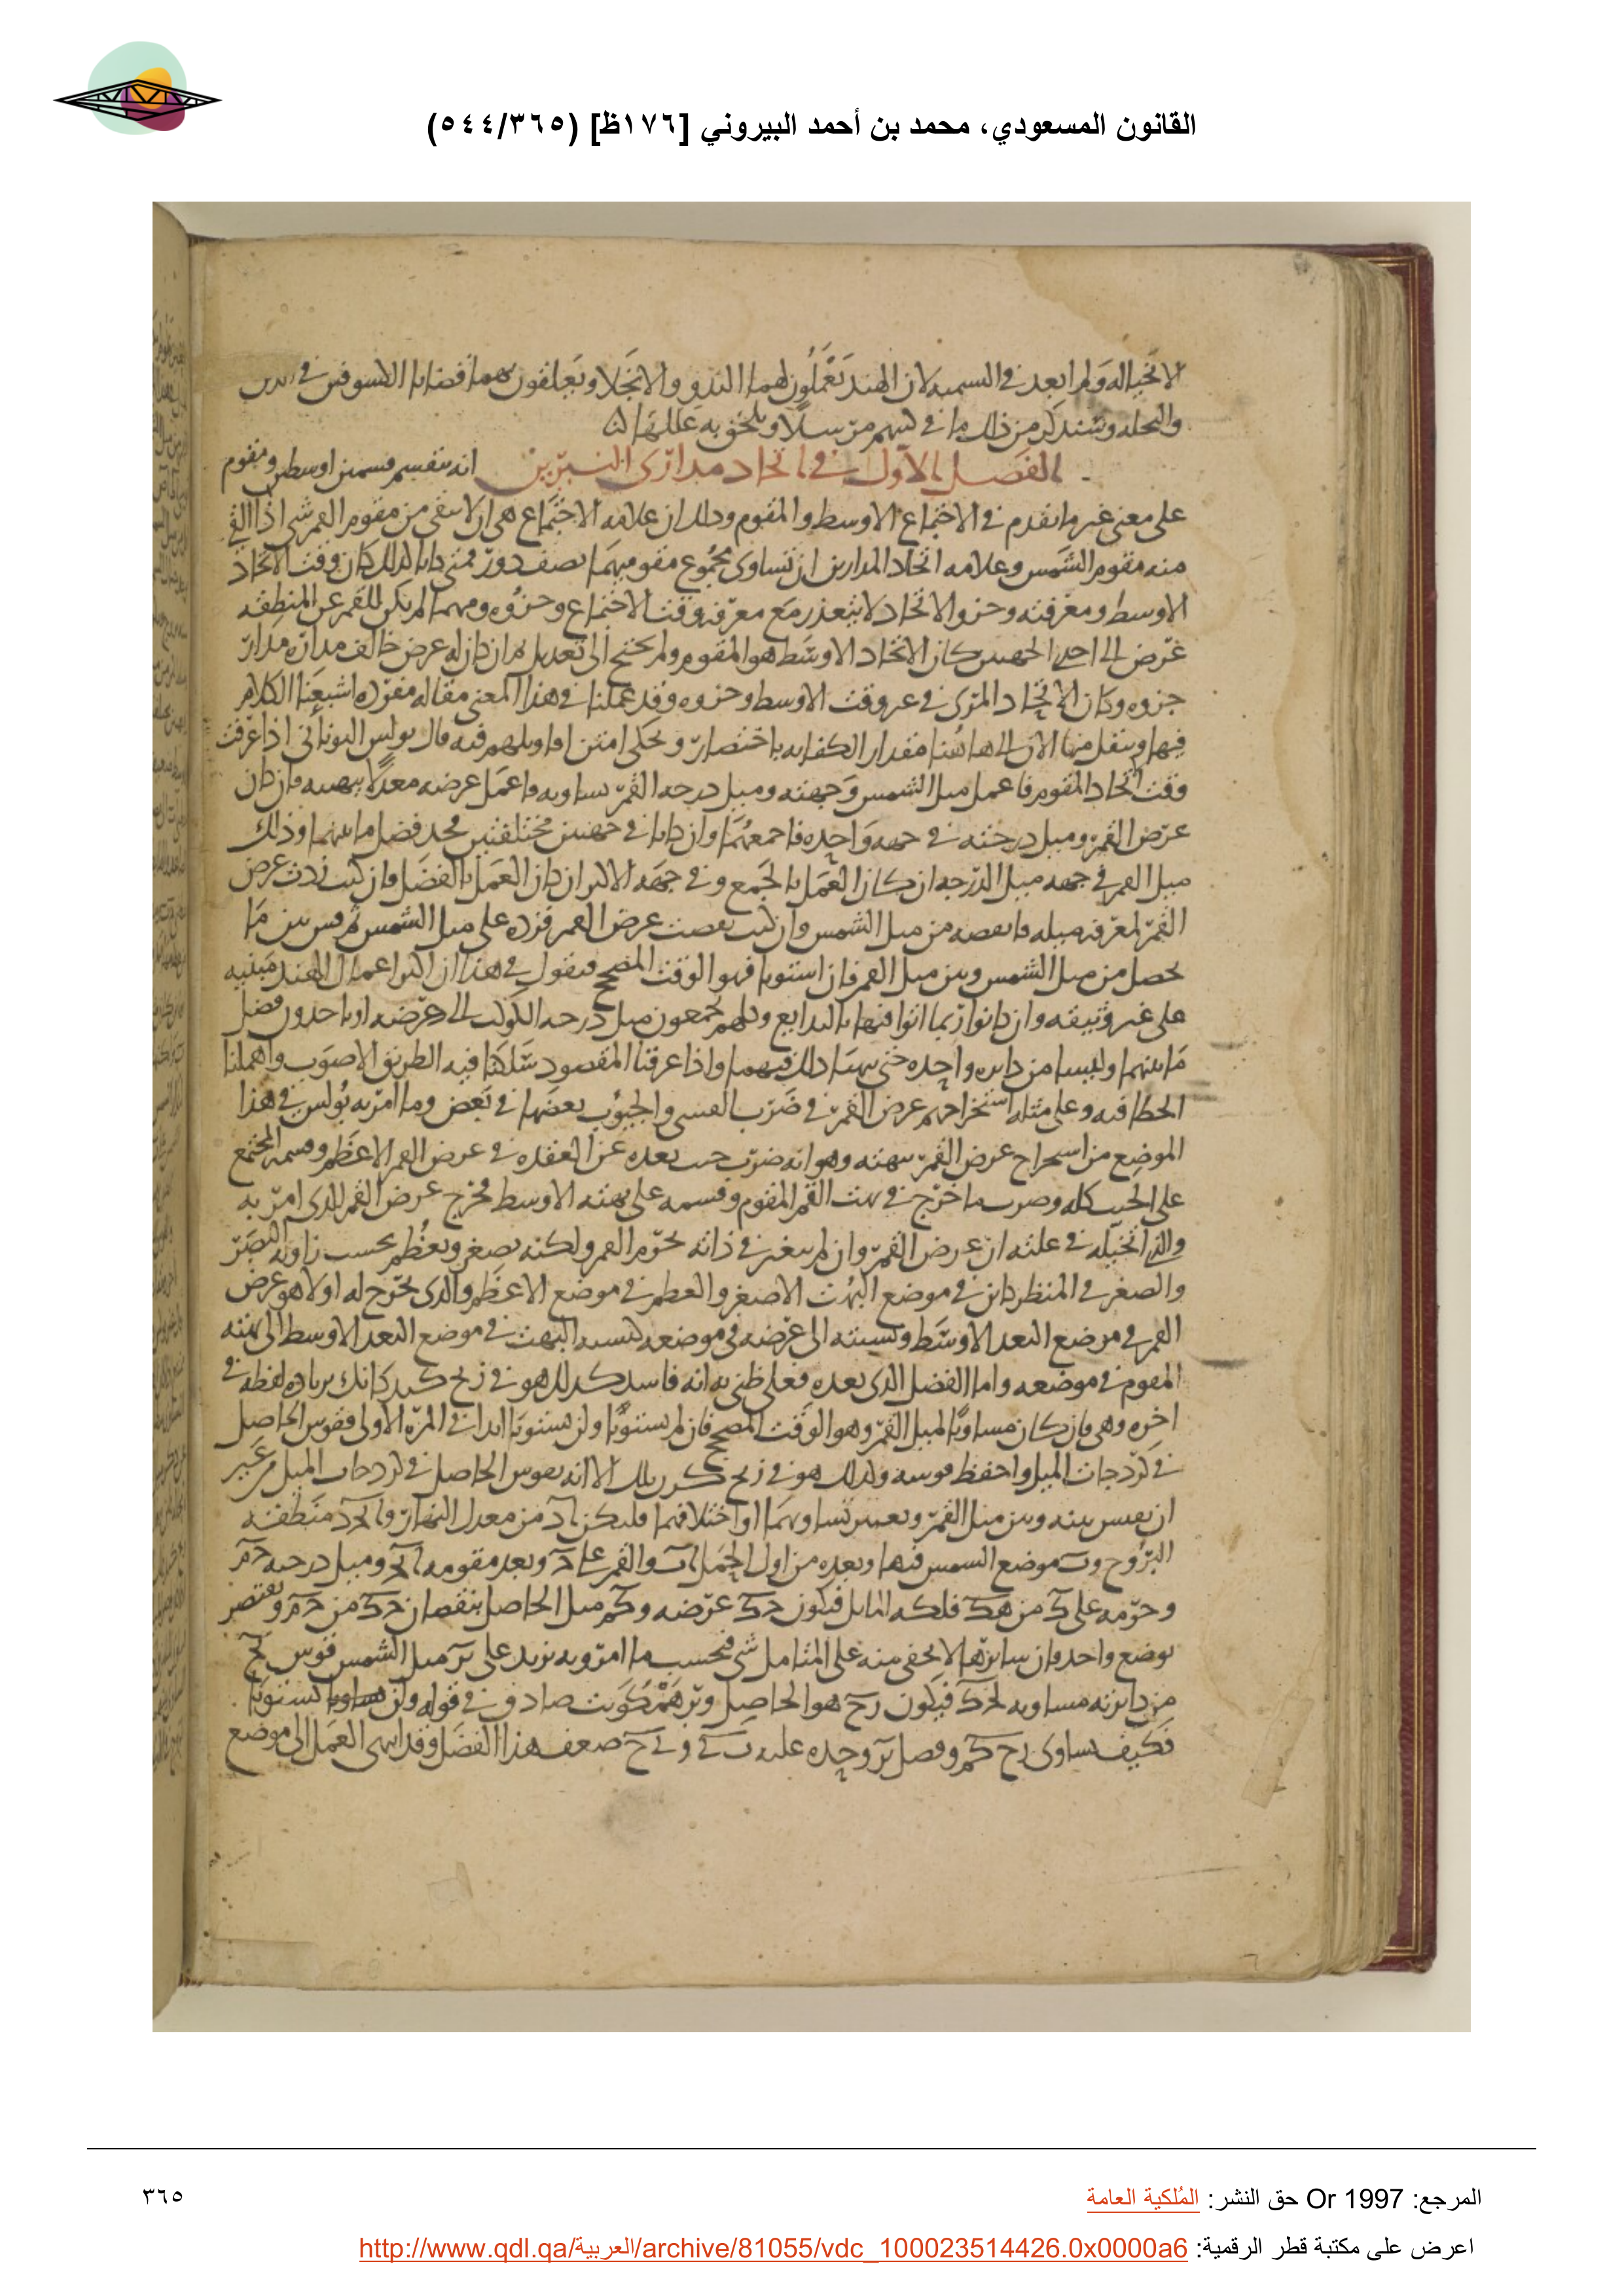 القانون المسعودي، محمد بن أحمد البيروني [١٧٦ظ] (٥٤٤/٣٦٥)
لان الهند يعملون لهما
من ذلك ما في كتبهم مرسلا ويلحق به عللها
الفصل الاول في اتحاد مداري النيرين انه ينقسم قسمين اوسط ومقوم
على معنى غير ما تقدم في الاجتماع الاوسط والمقوم وذلك ان علامة الاجتماع هي ان لا يبقى من مقوم القمر شي اذا القي
منه مقوم الشمس وعلامه اتحاد المدارين ان تساوى مجموع مقوميهما نصف دور فمتى كانا كذلك كان وقت الاتحاد
الاوسط ومعرفته وجزو الاتحاد لا يتعذر مع معرفه وقت الاجتماع وجزوه ومهما لم يكن للقمر عن المنطقه
عرض الى احدى الجهتين كان الاتحاد الاوسط هو المقوم ولم يحتج الى تعديل فان كان له عرض خالف مداره مدار
جزوه وكان الاتحاد المرئ في غير وقت الاوسط وجزوه وقد عملنا في هذا المعنى مقاله مفرده اشبعنا الكلام
فيها وننقل منها الان الى هاهنا مقدار الكفايه باختصار ونحكى فيه قال بولس اليوناني اذا عرفت
وقت اتحاد المقوم فاعمل ميل الشمس وجهته وميل درجه القمر يساويه واعمل عرضه معدلا ببهته فان كان
عرض القمر وميل درجته في جهه واحده فاجمعهما وان كانا في جهتين مختلفتين فخذ فضل ما بينهما وذلك
ميل القمر في جهه ميل الدرجه ان كان العمل بالجمع وفي جهه الاكثر ان كان العمل بالفضل فان كنت زدت عرض
القمر لمعرفه ميله فانقصه من ميل الشمس وان كنت نقصت عرض القمر فزده على ميل الشمس ثم قس بين ما
حصل من ميل الشمس وبين ميل القمر فان استويا فهو الوقت المصحح فنقول في هذا ان اكثر اعمال الهند مبنيه
على غير وثيقه وان كانوا ربما اتوا فيها بالبدايع وكلهم يجمعون ميل درجه الكوكب الى عرضه او ياخذون فضل
ما بينهما وليسا من دايره واحده حتى يتهيا ذلك فيهما واذا عرفنا المقصود سلكنا فيه الطريق الاصوب واهملنا
الخطا فيه وعلى مثله استخراجهم عرض القمر في ضرب القسى والجيوب بعضها في بعض وما امر به بولس في هذا
الموضع من استخراج عرض القمر ببهته وهو انه ضرب جيب بعده عن العقده في عرض القمر الاعظم وقسمه المجتمع
على الجيب كله وضرب ما خرج في بهت القمر المقوم وقسمه على بهته الاوسط فخرج عرض القمر الذى امر به
والذى اتخيله في علته ان عرض القمر وان لم يتغير في ذاته بحرم القمر ولكنه يصغر ويعظم بحسب زاويه البصر
والصغر في المنظر كاين في موضع البهت الاصغر والعظم في موضع الاعظم والذى يخرج له اولا هو عرض
القمر في موضع البعد الاوسط ونسبته الى عرضه في موضعه كنسبه البهت في موضع البعد الاوسط الى بهته
المقوم في موضعه واما الفصل الذى بعده فعلى ظني به انه فاسد كذلك هو في زيج بزياده لفظه في
اخره وهى فان كان مساويا لميل القمر فهو الوقت المصحح فان لم يستويا ولن يستويا ابدا في المره الاولى فقوس الحاصل
في كردجات الميل واحفظ قوسه وكذلك هو في زيج الا انه يقوس الحاصل في كردجات الميل من غير
ان يقيس بينه وبين ميل القمر ويعتبر تساويهما او اختلافهما فليكن من معدل النهار منطقه
البروج موضع الشمس فيها وبعده من اول الحمل والقمر على وبعد مقومه وميل درجته
من فلكه المايل فيكون عرضه ميل الحاصل بنقصان من
بوضع واحد فان سايرها لا يخفى منه على المتامل شي فبحسب ما امر به يزيد على ميل الشمس قوس
من دايرته مساويه فيكون هو الحاصل صادق في قوله ولن يستويا
فكيف يساوى وفصل وحده عليه ضعف هذا الفضل وقد انتهى العمل الى موضع
المرجع: Or 1997 حق النشر: المُلكية العامة
٣٦٥
اعرض على مكتبة قطر الرقمية: http://www.qdl.qa/العربية/archive/81055/vdc_100023514426.0x0000a6